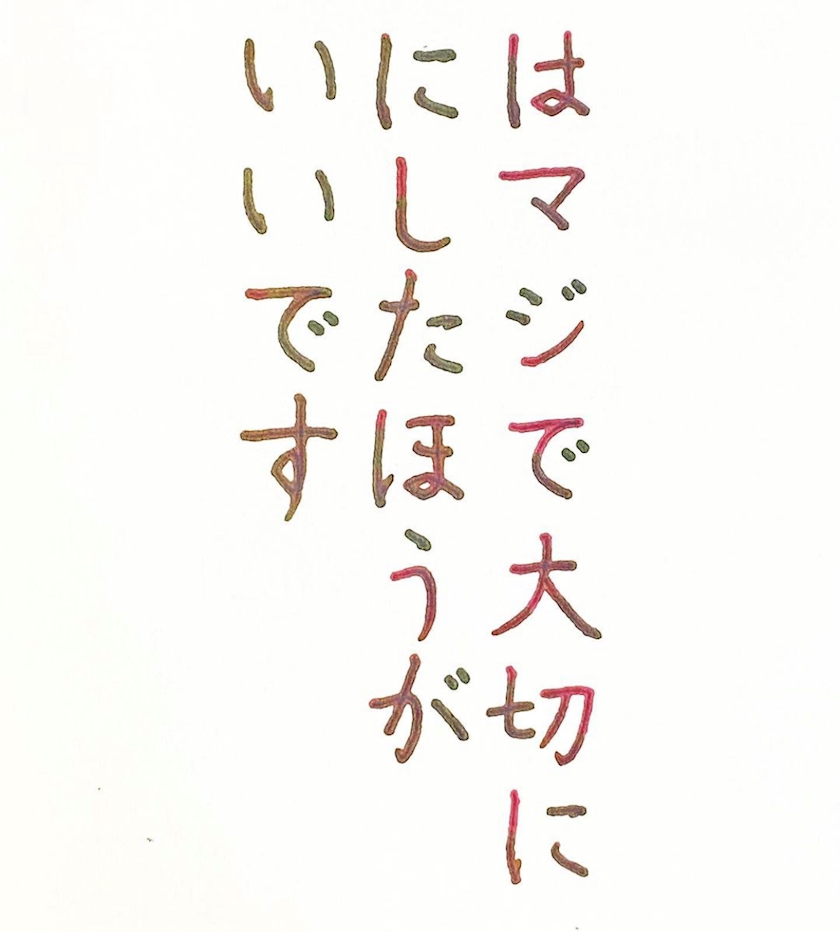 はマジで大切に
にしたほうが
いいです